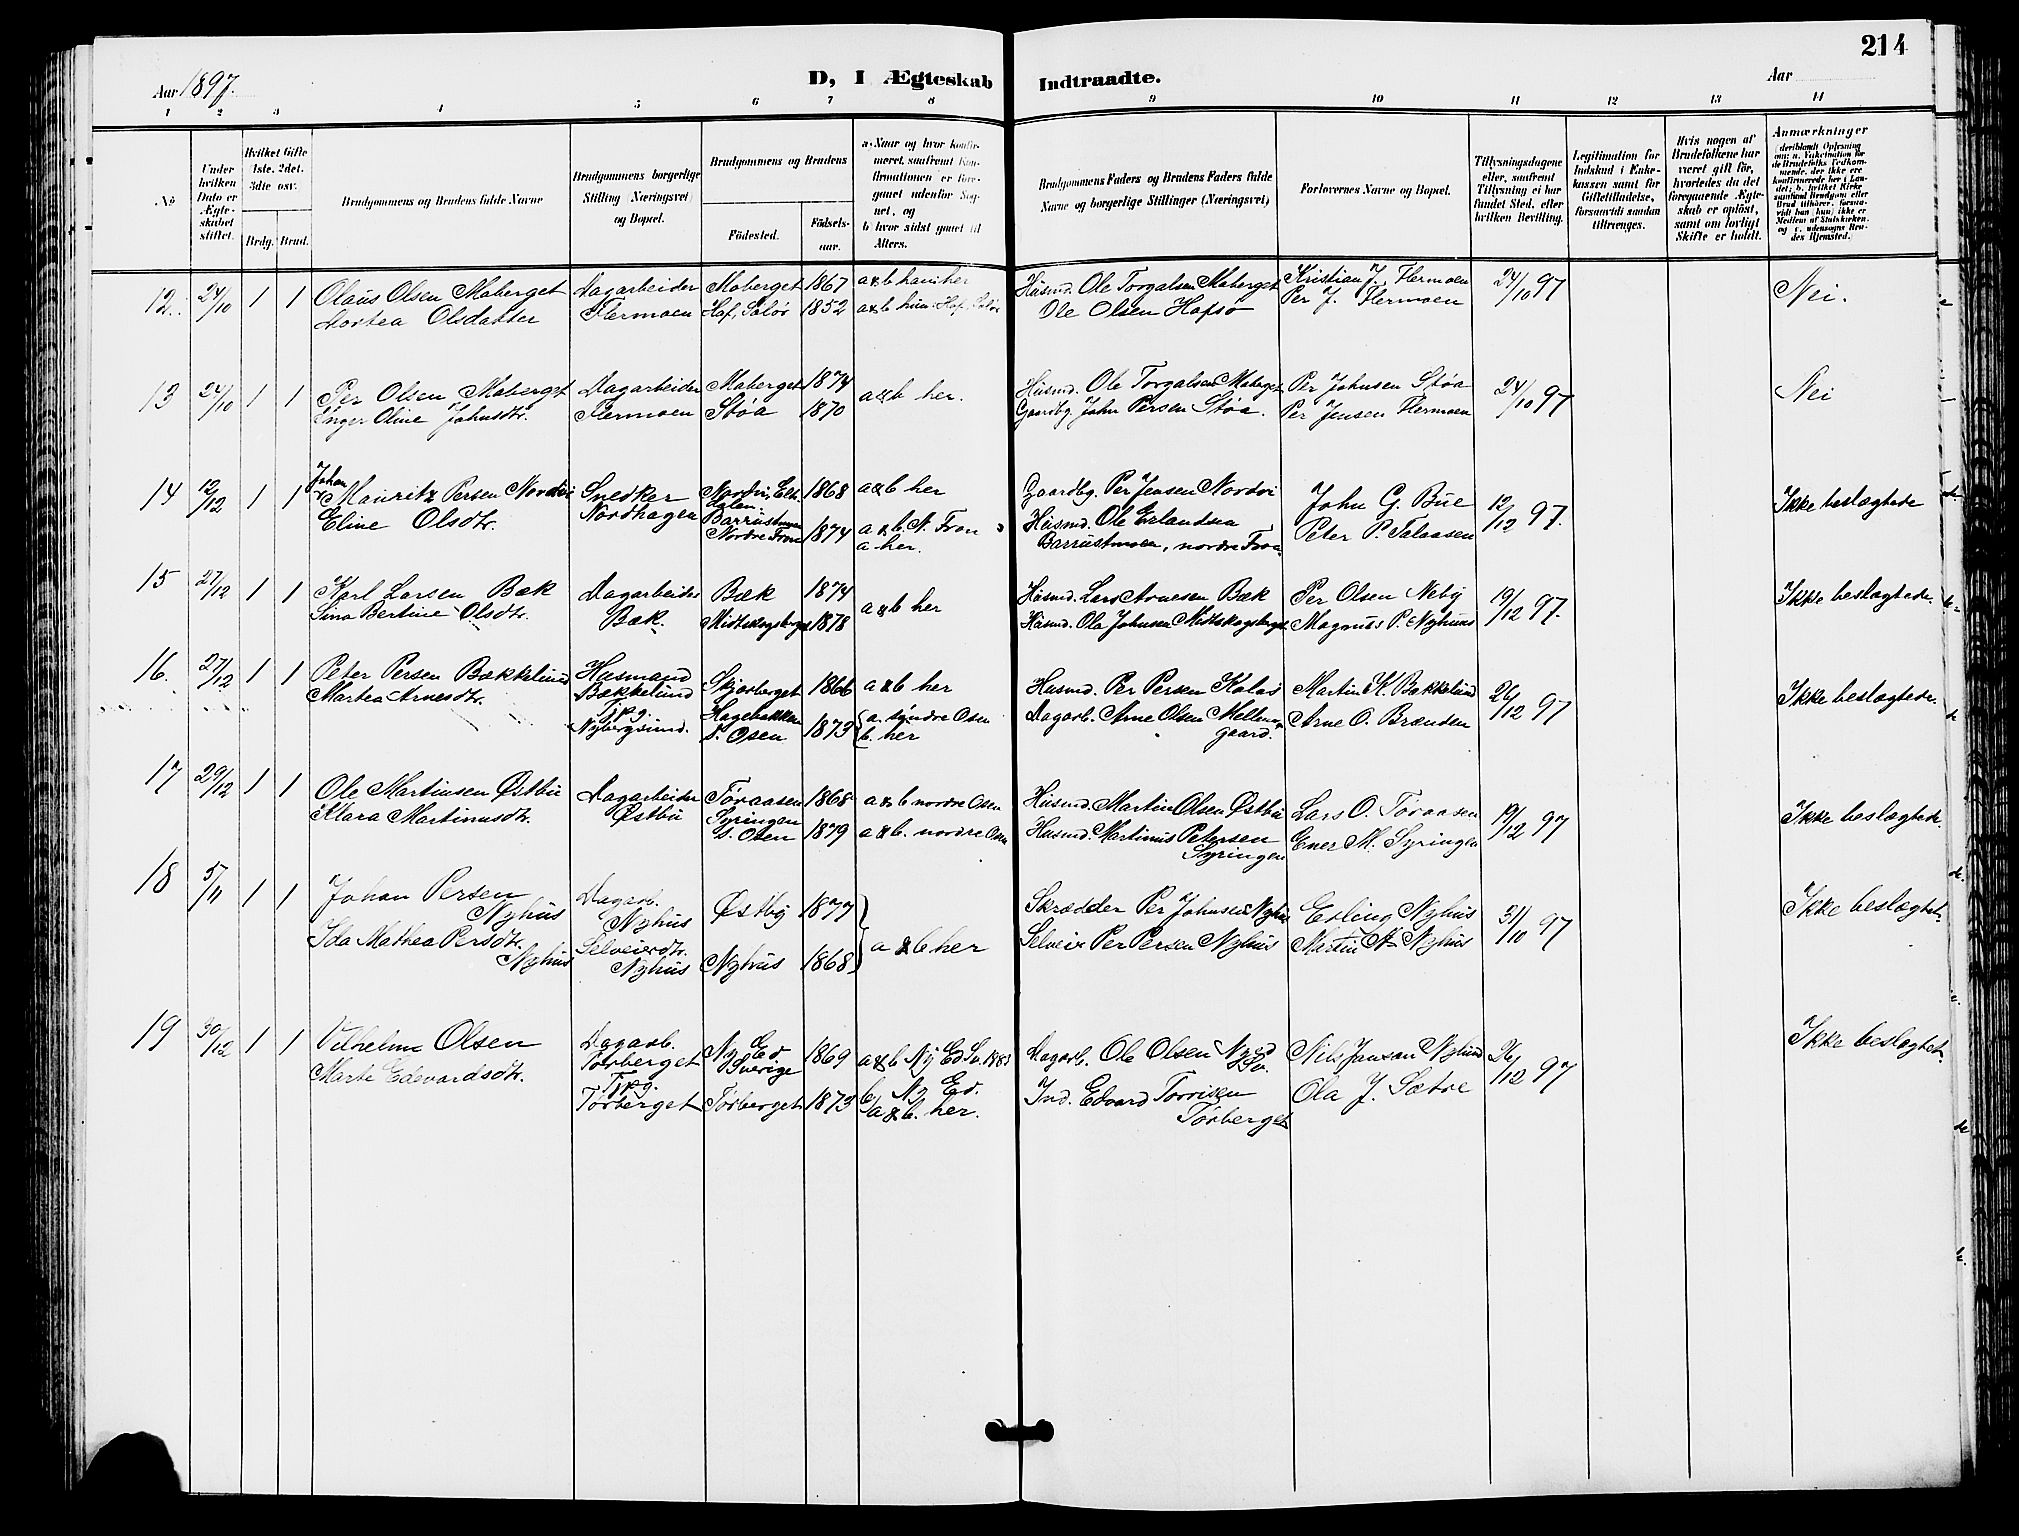 214
Aar 1897.
D, I Ægteskab Indtraadte.
Aar
1 2 3 4 5 6 7 8 9 10 11 12 13 14
No
Under hvilken Dato er Ægteskabet stiftet.
Hvilket Gifte 1ste, 2det, 3die osv.
Brdg. Brud.
Brudgommens og Brudens fulde Navne
Brudgommens borgerlige Stilling (Næringsvei) og Bopæl.
Brudgommens og Brudens
Fødested.
Fødsels-aar.
a) Naar og hvor konfirmeret, saafremt Konfirmationen er foregaaet udenfor Sognet, og
b) hvor sidst gaaet til Alters.
Brudgommens Faders og Brudens Faders fulde Navne og borgerlige Stillinger (Næringsvei)
Forlovernes Navne og Bopæl.
Tillysningsdagene eller, saafremt Tillysning ei har fundet Sted, efter hvilken Bevilling.
Legitimation for Indskud i Enkekassen samt for Giftetilladelse, forsaavidt saadan tiltrænges.
Hvis nogen af Brudefolkene har været gift før, hvorledes da det foregaaende Ægteskab er opløst, samt om lovligt Skifte er holdt.
Anmærkninger
12. 24/10 1 1 Olaus Olsen Moberget Dagarbeider Moberget 1867 a & b han: her Husmd. Ole Torgalsen Moberget Kristian J. Flermoen 24/10 97 Nei.
Dortea Olsdatter Flermoen Hof, Solør 1852 a & b hun: Hof, Solør Ole Olsen Hofsø Per J. Flermoen
13 24/10 1 1 Per Olsen Moberget Dagarbeider Moberget 1874 a & b her. Husmd. Ole Torgalsen Moberget Per Johnsen Støa 24/10 97 Nei
Inger Oline Johnsdtr. Flermoen Støa 1870 Gaardbg. John Persen Støa. Per Jensen Flermoen
14 12/12 1 1 Johan Mauritz Persen Nordvi Snedker Nordvi, 1868 a & b her Gaardbg. Per Jensen Nordvi John G. Bue 12/12 97. Ikke beslægtede
Eline Olsdtr. Nordhagen Nordre Fron 1874 a & b N. Fron Husmd. Ole Erlandsen Peter P. Galaasen
a her. nordre Fron
15 27/12 1 1 Karl Larsen Bæk Dagarbeider Bæk 1874 a & b her Husmd. Lars Arnesen Bæk Per Olsen Neby 19/12 97. Ikke beslægtede.
Sina Bertine Olsdtr. Bæk. Midtskogsberget 1878 Husmd. Ola Johnsen Midtskogsberget Magnus P. Nyhuus
16. 27/12 1 1 Peter Persen Bækkelund Husmand Skjærberget 1866 a & b her Husmd. Per Persen Kolos Martin K. Bækkelund 26/12 97 Ikke beslægtede.
Martea Arnesdtr. Bækkelund Hagebakken 1873 a. søndre Osen Dagarb. Arne Olsen Mellemgaard. Arne O. Brænden
Tjpg. Nybergsund. S. Osen b. her
17 29/12 1 1 Ole Martinsen Østbu Dagarbeider Tøraasen 1868 a & b nordre Osen Husmd. Martin Olsen Østbu Lars O. Tøraasen 19/12 97 Ikke beslægtede.
Klara Martinusdtr. Østbu Syringen S. Osen 1879 a & b. nordre Osen Husmd. Martinus Petersen Syringen Ener M. Syringen
18 5/11 1 1 Johan Persen Nyhus Dagarb. Nyhus Østby 1877 Skrædder Per Johnsen Nyhus Erling Nyhus 31/10 97 Ikke beslægtet.
Ida Mathea Persdtr. Nyhus Selveierdtr. Nyhus Nyhus 1868 a & b her Selveier Per Persen Nyhus Martin N. Nyhus
19 30/12 1 1 Vilhelm Olsen Dagarb. Tørberget Ny Ed. Sverige 1869 a & b Ny Ed. Sv. 1883 Dagarb. Ole Olsen Ny Ed Sv. Nils Jansen Nylund 26/12 97 Ikke beslægtet.
Marte Edevardsdtr. Tjpg. Tørberget Tørberget 1873 b. Ny Ed. a & b. her. Ind. Edvard Torrisen Tørberget Ola J. Sætre